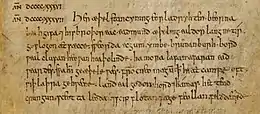 AÑ DCCCCXXXVI
AÑ DCCCCXXXVII Her æþelstan cyning eorla dryhten beorna
his broþor eac eadmund æþeling ealdor langne tir
geslogon æt sæcce sweorda ecgum ymbe brunanburh bord
heowan heaþolinde hamora lafan afaran ead
weardes swa him geæþele wæs from cneo mægum hi æt campe oft
wiþ laþra gehwæne land ealgodon hord 7 hamas hettend
crungun sceotta leoda 7 scip flotan fæge feollan feld